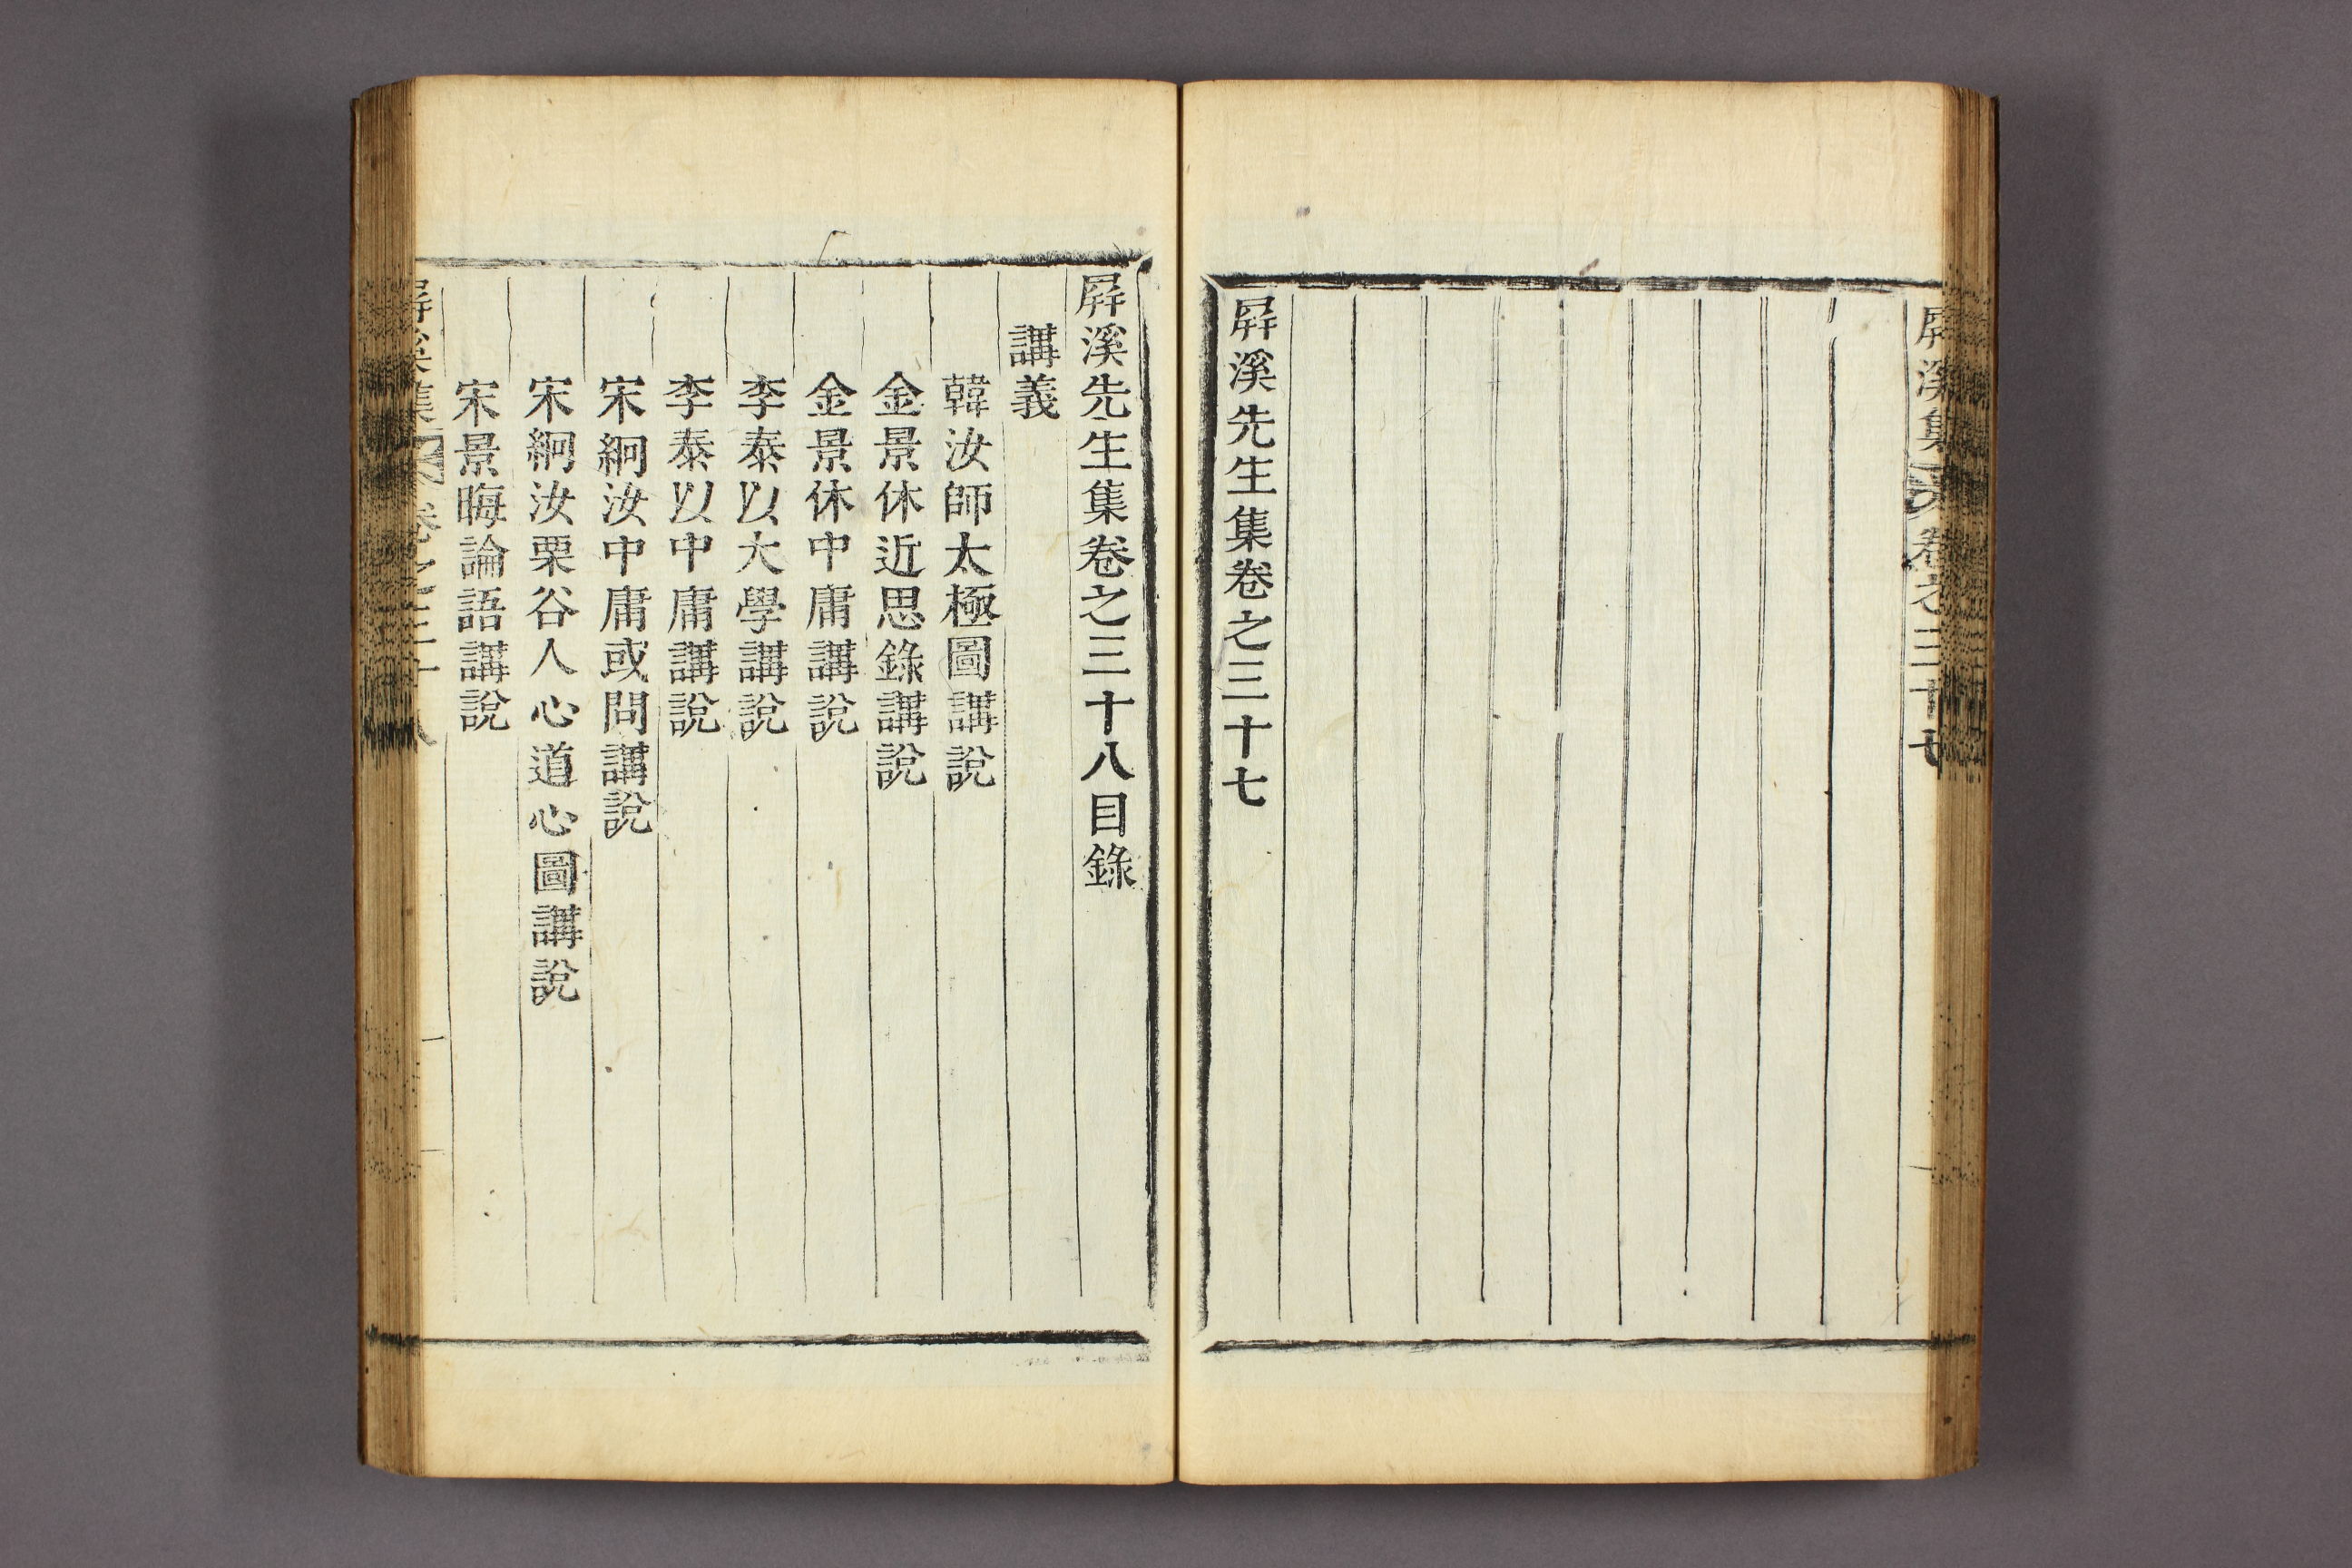 屛溪集 卷之三十七
屛溪先生集卷之三十七
屛溪先生集卷之三十八目錄
講義
韓汝師太極圖講說
金景休近思錄講說
金景休中庸講說
李泰以大學講說
李泰以中庸講說
宋絅汝中庸或問講說
宋絅汝栗谷人心道心圖講說
宋景晦論語講說
屛溪集 卷之三十八 一